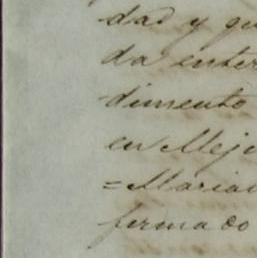 dad y qu
da enter
dimento
en Meji
=Maria
firmado